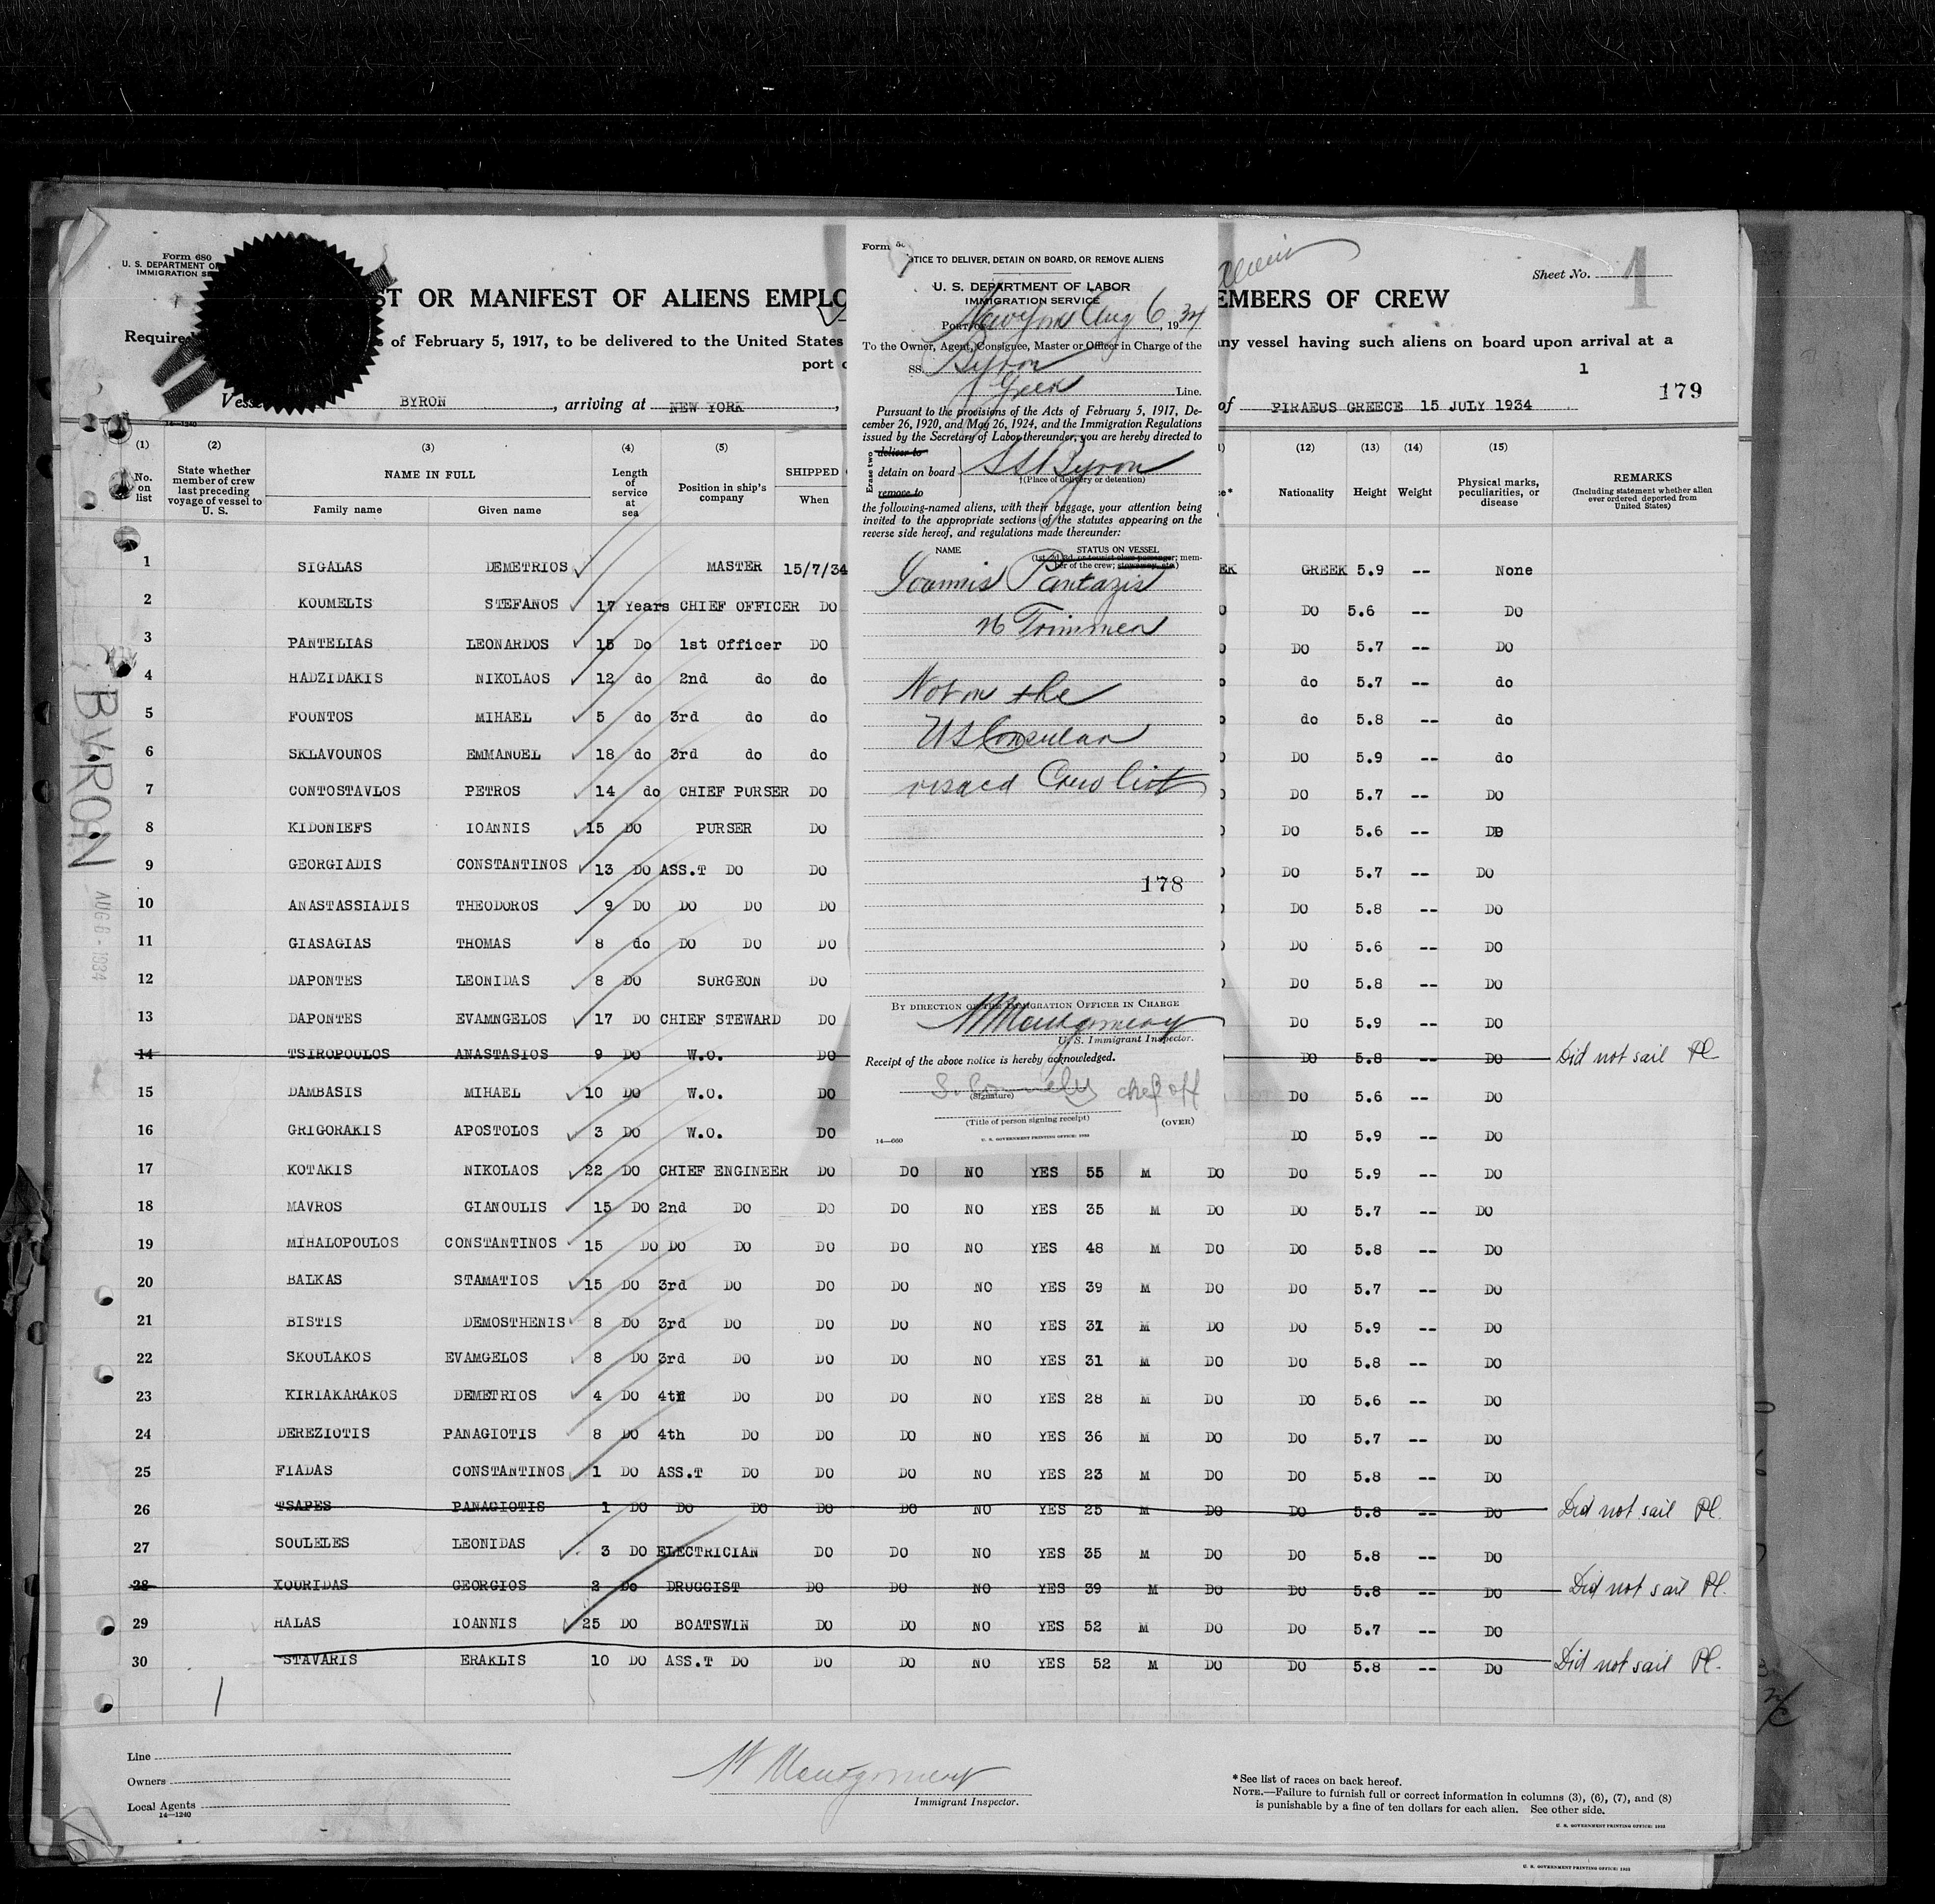 Form 680
U. S. DEPARTMENT OF
IMMIGRATION SE
ST OR MANIFEST OF ALIENS EMPLO
EMBERS OF CREW
Sheet No. 1
Required
s of February 5, 1917, to be delivered to the United States
any vessel having such aliens on board upon arrival at a
port o
1
179
Vesse BYRON, arriving at NEW YORK,
of PIRAEUS GREECE 15 JULY 1934
14—1240
(1) (2) (3) (4) (5) (12) (13) (14) (15)
No. on list
State whether member of crew last preceding voyage of vessel to U. S.
NAME IN FULL
Family name Given name
Length of service at sea
Position in ship's company
SHIPPED
When
Nationality Height Weight
Physical marks, peculiarities, or disease
REMARKS
(Including statement whether alien ever ordered deported from United States)
1 SIGALAS DEMETRIOS MASTER 15/7/34 EK GREEK 5.9 -- None
2 KOUMELIS STEFANOS 17 Years CHIEF OFFICER DO DO 5.6 -- DO
3 PANTELIAS LEONARDOS 15 Do 1st Officer DO DO 5.7 -- DO
4 HADZIDAKIS NIKOLAOS 12 do 2nd do do do 5.7 -- do
5 FOUNTOS MIHAEL 5 do 3rd do do do 5.8 -- do
6 SKLAVOUNOS EMMANUEL 18 do 3rd do do DO 5.9 -- do
7 CONTOSTAVLOS PETROS 14 do CHIEF PURSER DO DO 5.7 -- DO
8 KIDONIEFS IOANNIS 15 DO PURSER DO DO 5.6 -- DO
9 GEORGIADIS CONSTANTINOS 13 DO ASS.T DO DO DO 5.7 -- DO
10 ANASTASSIADIS THEODOROS 9 DO DO DO DO DO 5.8 -- DO
11 GIASAGIAS THOMAS 8 do DO DO DO DO 5.6 -- DO
12 DAPONTES LEONIDAS 8 DO SURGEON DO DO 5.8 -- DO
13 DAPONTES EVAMNGELOS 17 DO CHIEF STEWARD DO DO 5.9 -- DO
14 TSIROPOULOS ANASTASIOS 9 DO W.O. DO DO 5.8 -- DO Did not sail Pl
15 DAMBASIS MIHAEL 10 DO W.O. DO DO 5.6 -- DO
16 GRIGORAKIS APOSTOLOS 3 DO W.O. DO DO 5.9 -- DO
17 KOTAKIS NIKOLAOS 22 DO CHIEF ENGINEER DO DO NO YES 55 M DO DO 5.9 -- DO
18 MAVROS GIANOULIS 15 DO 2nd DO DO DO NO YES 35 M DO DO 5.7 -- DO
19 MIHALOPOULOS CONSTANTINOS 15 DO DO DO DO DO NO YES 48 M DO DO 5.8 -- DO
20 BALKAS STAMATIOS 15 DO 3rd DO DO DO NO YES 39 M DO DO 5.7 -- DO
21 BISTIS DEMOSTHENIS 8 DO 3rd DO DO DO NO YES 31 M DO DO 5.9 -- DO
22 SKOULAKOS EVAMGELOS 8 DO 3rd DO DO DO NO YES 31 M DO DO 5.8 -- DO
23 KIRIAKARAKOS DEMETRIOS 4 DO 4th DO DO DO NO YES 28 M DO DO 5.6 -- DO
24 DEREZIOTIS PANAGIOTIS 8 DO 4th DO DO DO NO YES 36 M DO DO 5.7 -- DO
25 FIADAS CONSTANTINOS 1 DO ASS.T DO DO DO NO YES 23 M DO DO 5.8 -- DO
26 TSAPES PANAGIOTIS 1 DO DO DO DO DO NO YES 25 M DO DO 5.8 -- DO Did not sail Pl.
27 SOULELES LEONIDAS 3 DO ELECTRICIAN DO DO NO YES 35 M DO DO 5.8 -- DO
28 XOURIDAS GEORGIOS 2 Do DRUGGIST DO DO NO YES 39 M DO DO 5.8 -- DO Did not sail Pl.
29 HALAS IOANNIS 25 DO BOATSWIN DO DO NO YES 52 M DO DO 5.7 -- DO
30 STAVARIS ERAKLIS 10 DO ASS.T DO DO DO NO YES 52 M DO DO 5.8 -- DO Did not sail Pl.
Line
Owners
Local Agents
14—1240
W Montgomery
Immigrant Inspector.
*See list of races on back hereof.
NOTE.—Failure to furnish full or correct information in columns (3), (6), (7), and (8)
is punishable by a fine of ten dollars for each alien. See other side.
U. S. GOVERNMENT PRINTING OFFICE: 1933
U. S. GOVERNMENT PRINTING OFFICE: 1933
BYRON
AUG 6 - 1934
Form
OTICE TO DELIVER, DETAIN ON BOARD, OR REMOVE ALIENS
U. S. DEPARTMENT OF LABOR
IMMIGRATION SERVICE
Port of New York Aug 6, 1934
To the Owner, Agent, Consignee, Master or Officer in Charge of the
SS. Byron
Greek Line.
Pursuant to the provisions of the Acts of February 5, 1917, De-
cember 26, 1920, and May 26, 1924, and the Immigration Regulations
issued by the Secretary of Labor thereunder, you are hereby directed to
Erase two
deliver to
detain on board
remove to
SS Byron
†(Place of delivery or detention)
the following-named aliens, with their baggage, your attention being
invited to the appropriate sections of the statutes appearing on the
reverse side hereof, and regulations made thereunder:
NAME STATUS ON VESSEL
(1st, 2d, 3d, or tourist class passenger; mem-
ber of the crew; stowaway, etc.)
Ioannis Pantazis
Trimmer
Not on the
US Consular
visaed Crew list
178
BY DIRECTION OF THE IMMIGRATION OFFICER IN CHARGE
W Montgomery
U. S. Immigrant Inspector.
Receipt of the above notice is hereby acknowledged.
chef off
(Signature)
(Title of person signing receipt)
(OVER)
14—660
U. S. GOVERNMENT PRINTING OFFICE: 1933